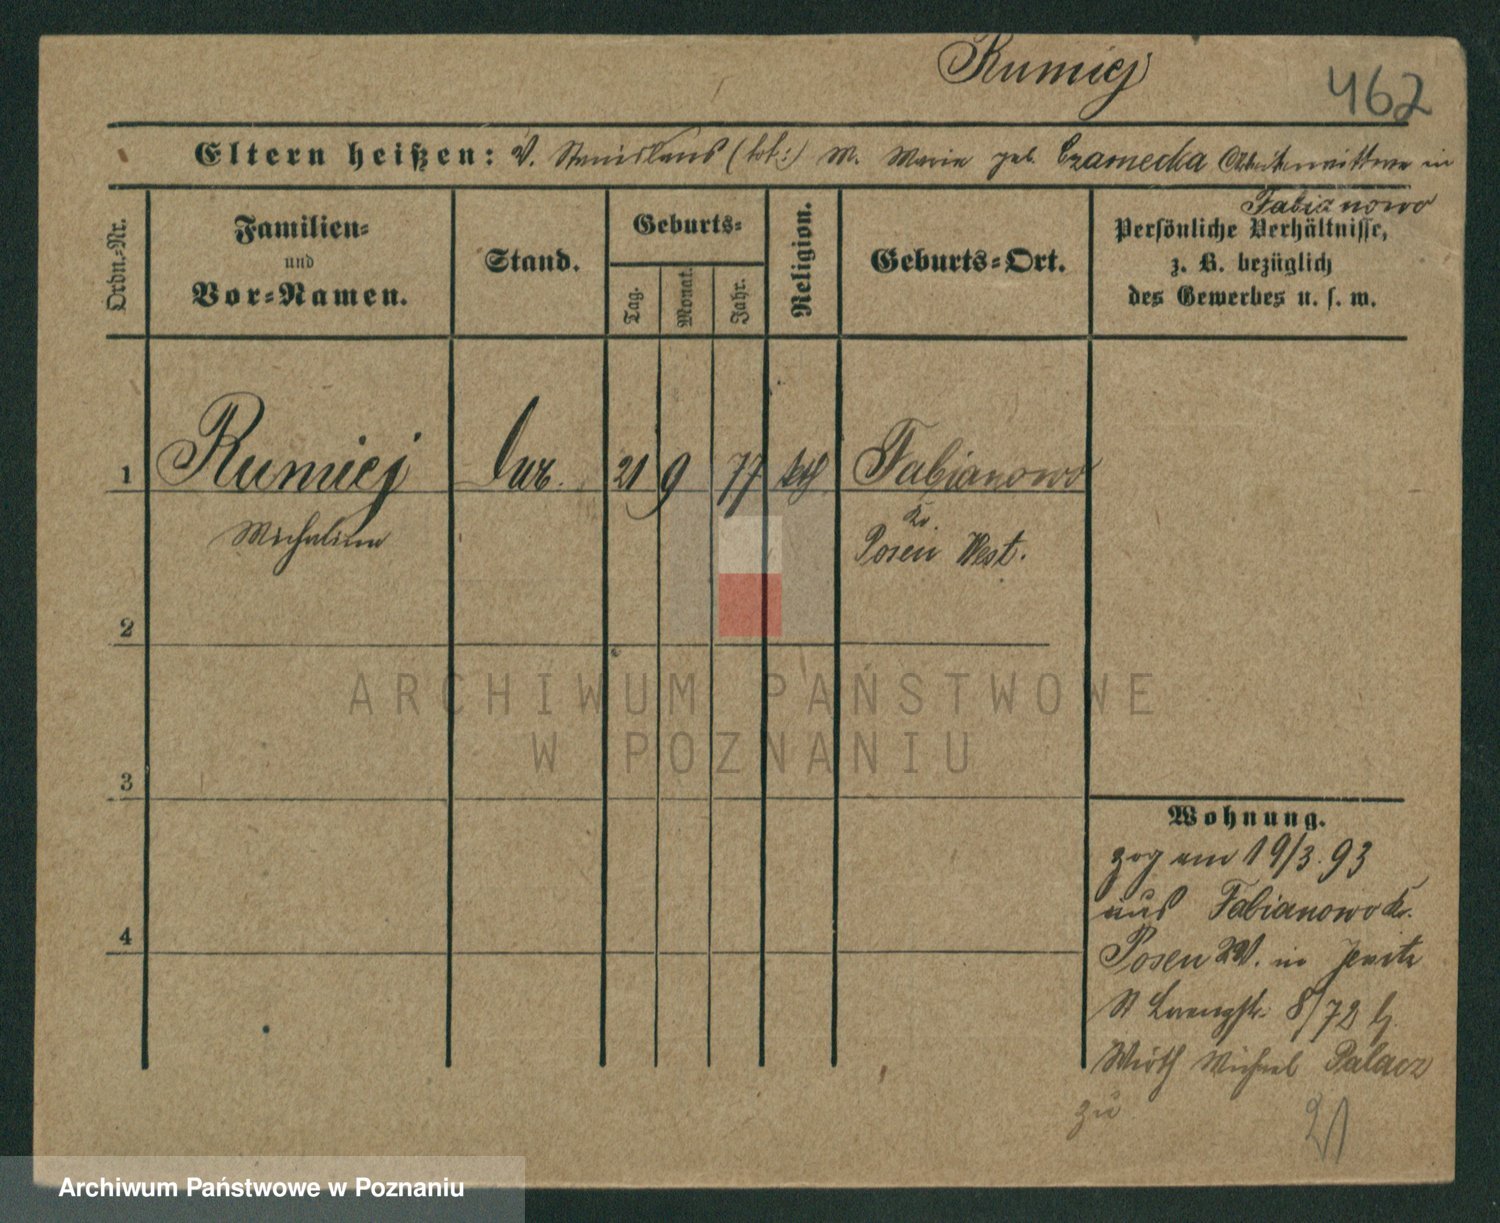 Rumiej
462
Eltern heißen: V. Stanislaus (tot:) M. Maria geb. Czarnecka Arbeiterwittwe in
Fabianowo
Ordn.-Nr.
Familien-
und
Vor-Namen.
Stand.
Geburts-
Tag.
Monat.
Jahr.
Religion.
Geburts-Ort.
Persönliche Verhältnisse,
z. B. bezüglich
des Gewerbes u. s. w.
1 Rumiej 21 9 77 kth Fabianowo
Michalina
Kr.
Posen West.
2
3
4
Wohnung.
zog am 19/3.93
aus Fabianowo Kr.
Posen W. in
St 8/72
Wirth Michael Palacz
zu
21
ARCHIWUM PAŃSTWOWE
W POZNANIU
Archiwum Państwowe w Poznaniu